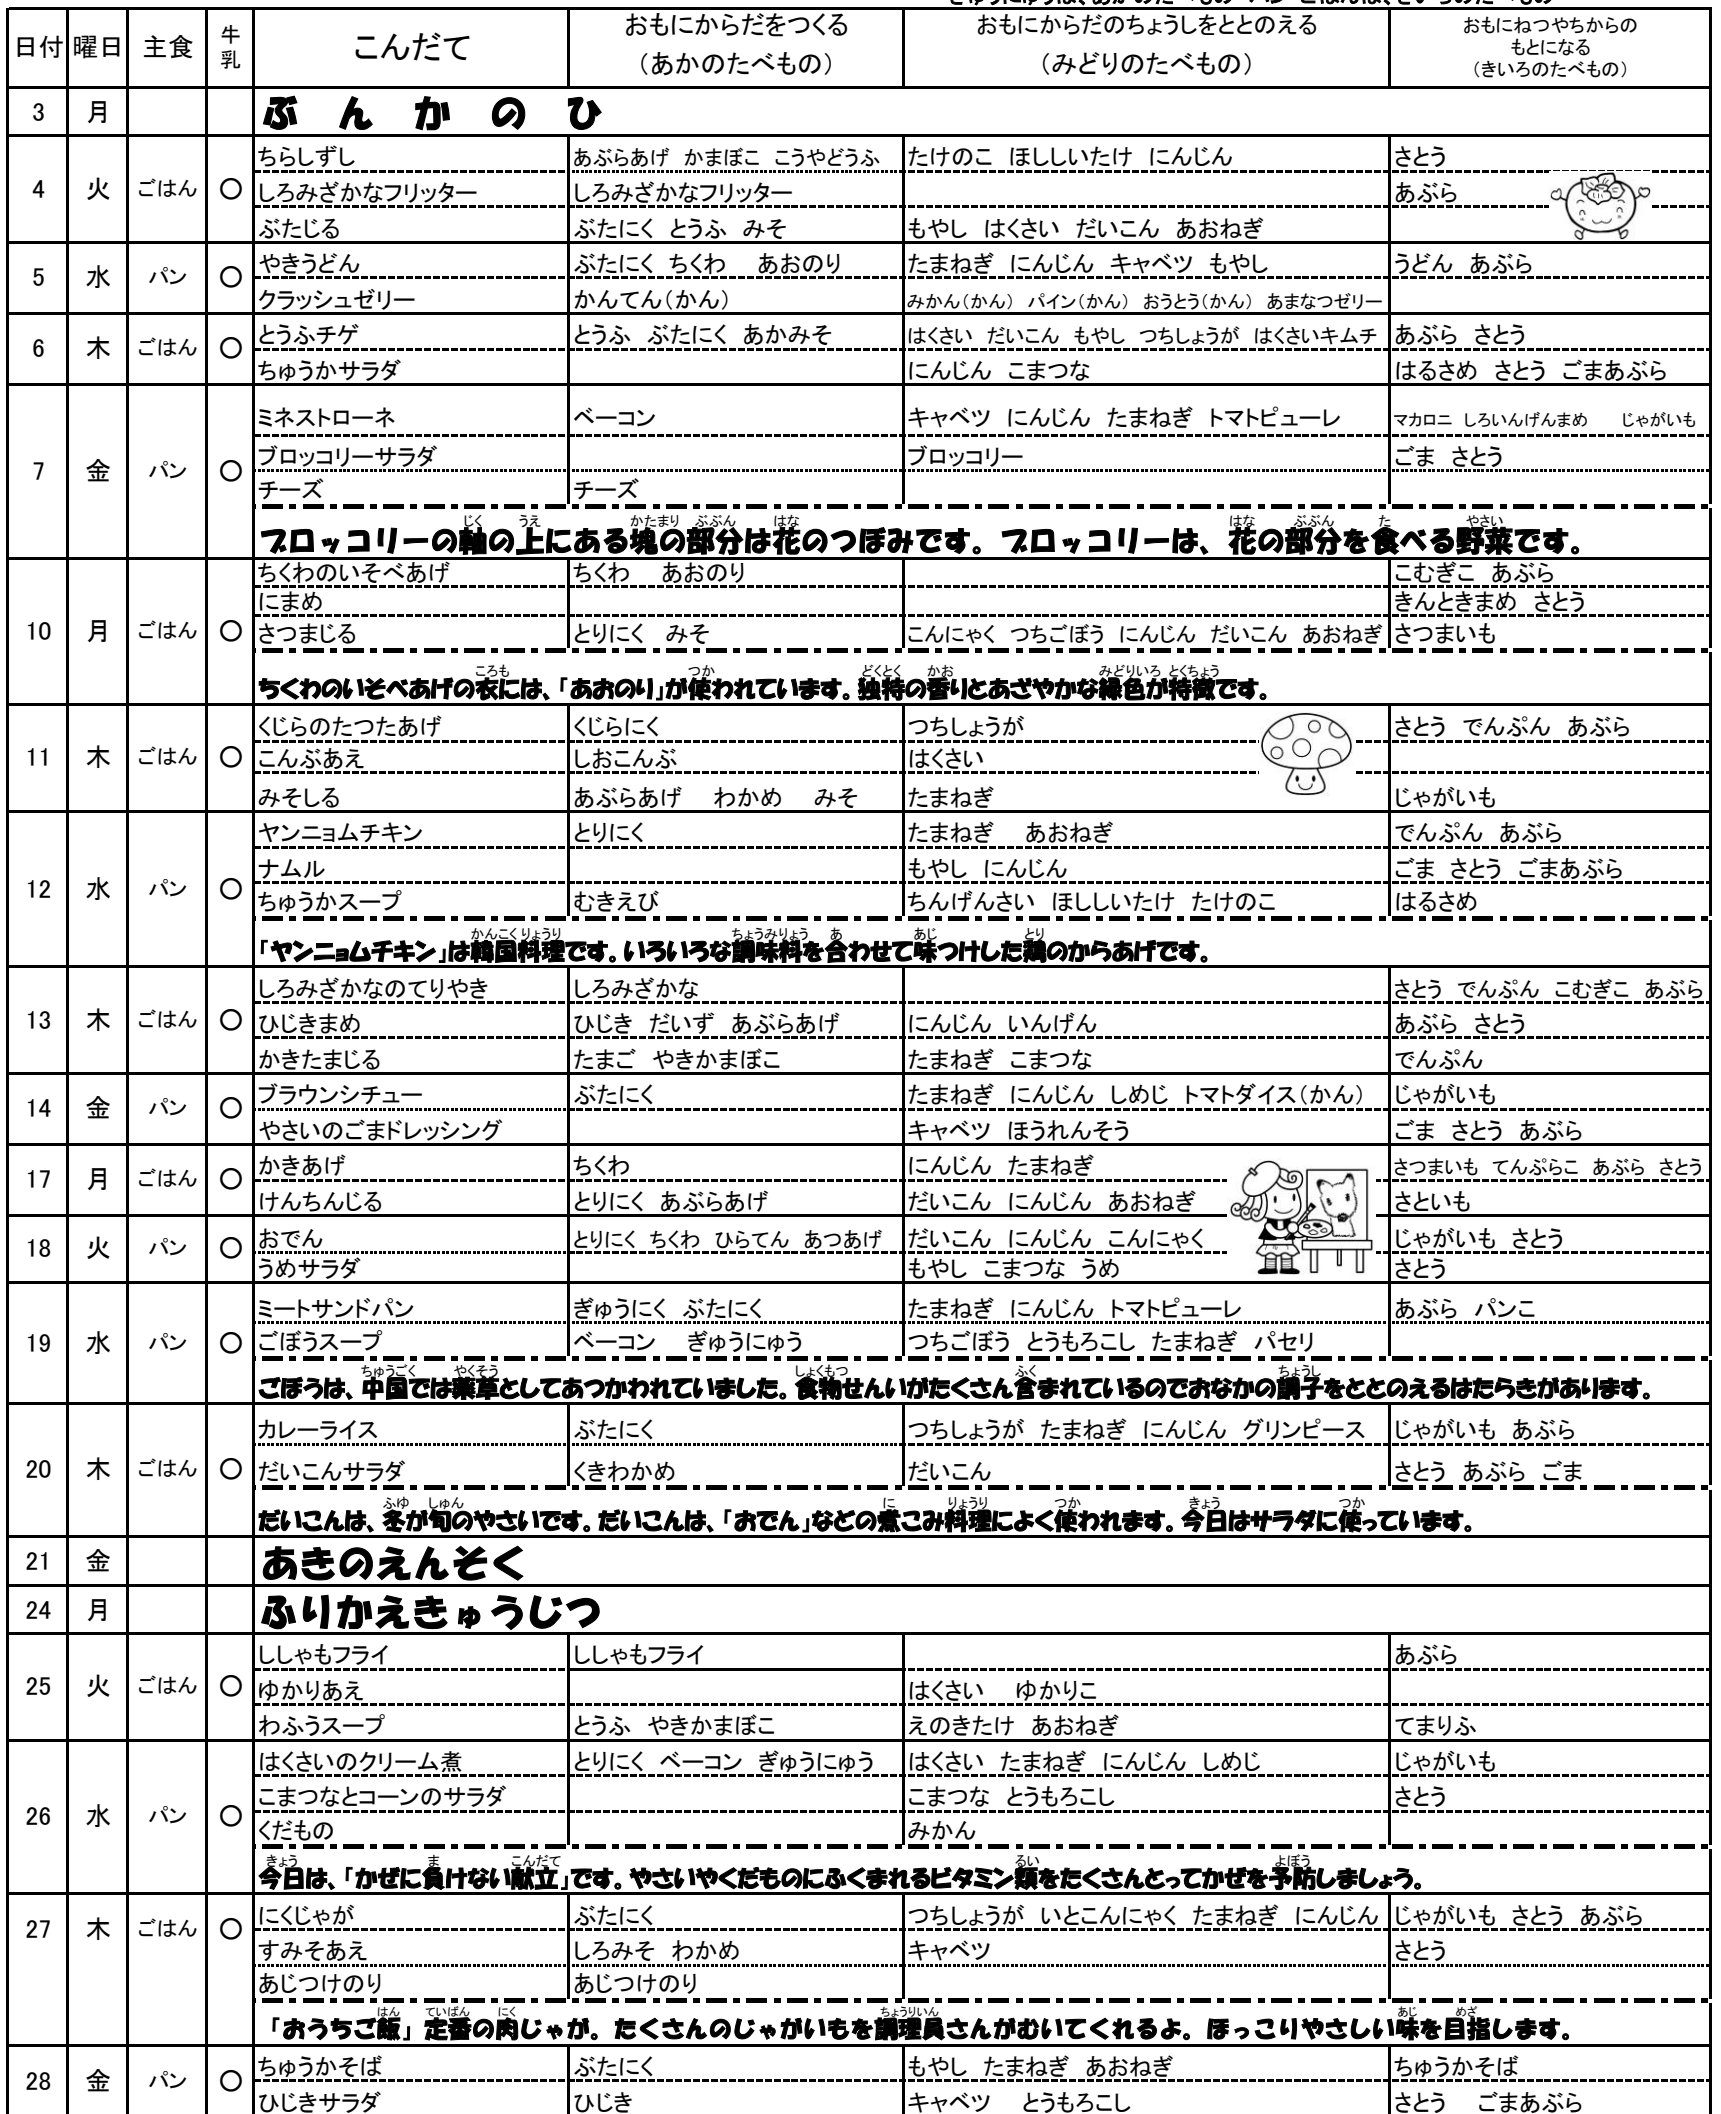 日付 曜日 主食 牛乳 こんだて おもにからだをつくる（あかのたべもの） おもにからだのちょうしをととのえる（みどりのたべもの） おもにねつやちからのもとになる（きいろのたべもの）
3 月 ぶんかのひ
4 火 ごはん ○ ちらしずし あぶらあげ かまぼこ こうやどうふ たけのこ ほししいたけ にんじん さとう
しろみざかなフリッター しろみざかなフリッター あぶら
ぶたじる ぶたにく とうふ みそ もやし はくさい だいこん あおねぎ
5 水 パン ○ やきうどん ぶたにく ちくわ あおのり たまねぎ にんじん キャベツ もやし うどん あぶら
クラッシュゼリー かんてん（かん） みかん（かん） パイン（かん） おうとう（かん） あまなつゼリー
6 木 ごはん ○ とうふチゲ とうふ ぶたにく あかみそ はくさい だいこん もやし つちしょうが はくさいキムチ あぶら さとう
ちゅうかサラダ にんじん こまつな はるさめ さとう ごまあぶら
7 金 パン ○ ミネストローネ ベーコン キャベツ にんじん たまねぎ トマトピューレ マカロニ しろいんげんまめ じゃがいも
ブロッコリーサラダ ブロッコリー ごま さとう
チーズ チーズ
ブロッコリーの軸の上にある塊の部分は花のつぼみです。ブロッコリーは、花の部分を食べる野菜です。
10 月 ごはん ○ ちくわのいそべあげ ちくわ あおのり こむぎこ あぶら
にまめ きんときまめ さとう
さつまじる とりにく みそ こんにゃく つちごぼう にんじん だいこん あおねぎ さつまいも
ちくわのいそべあげの衣には、「あおのり」が使われています。独特の香りとあざやかな緑色が特徴です。
11 木 ごはん ○ くじらのたつたあげ くじらにく つちしょうが さとう でんぷん あぶら
こんぶあえ しおこんぶ はくさい
みそしる あぶらあげ わかめ みそ たまねぎ じゃがいも
12 水 パン ○ ヤンニョムチキン とりにく たまねぎ あおねぎ でんぷん あぶら
ナムル もやし にんじん ごま さとう ごまあぶら
ちゅうかスープ むきえび ちんげんさい ほししいたけ たけのこ はるさめ
「ヤンニョムチキン」は韓国料理です。いろいろな調味料を合わせて味つけした鶏のからあげです。
13 木 ごはん ○ しろみざかなのてりやき しろみざかな さとう でんぷん こむぎこ あぶら
ひじきまめ ひじき だいず あぶらあげ にんじん いんげん あぶら さとう
かきたまじる たまご やきかまぼこ たまねぎ こまつな でんぷん
14 金 パン ○ ブラウンシチュー ぶたにく たまねぎ にんじん しめじ トマトダイス（かん） じゃがいも
やさいのごまドレッシング キャベツ ほうれんそう ごま さとう あぶら
17 月 ごはん ○ かきあげ ちくわ にんじん たまねぎ さつまいも てんぷらこ あぶら さとう
けんちんじる とりにく あぶらあげ だいこん にんじん あおねぎ さといも
18 火 パン ○ おでん とりにく ちくわ ひらてん あつあげ だいこん にんじん こんにゃく じゃがいも さとう
うめサラダ もやし こまつな うめ さとう
19 水 パン ○ ミートサンドパン ぎゅうにく ぶたにく たまねぎ にんじん トマトピューレ あぶら パンこ
ごぼうスープ ベーコン ぎゅうにゅう つちごぼう とうもろこし たまねぎ パセリ
ごぼうは、中国では薬草としてあつかわれていました。食物せんいがたくさん含まれているのでおなかの調子をととのえるはたらきがあります。
20 木 ごはん ○ カレーライス ぶたにく つちしょうが たまねぎ にんじん グリンピース じゃがいも あぶら
だいこんサラダ くきわかめ だいこん さとう あぶら ごま
だいこんは、冬が旬のやさいです。だいこんは、「おでん」などの煮こみ料理によく使われます。今日はサラダに使っています。
21 金 あきのえんそく
24 月 ふりかえきゅうじつ
25 火 ごはん ○ ししゃもフライ ししゃもフライ あぶら
ゆかりあえ はくさい ゆかりこ
わふうスープ とうふ やきかまぼこ えのきたけ あおねぎ てまりふ
26 水 パン ○ はくさいのクリーム煮 とりにく ベーコン ぎゅうにゅう はくさい たまねぎ にんじん しめじ じゃがいも
こまつなとコーンのサラダ こまつな とうもろこし さとう
くだもの みかん
今日は、「かぜに負けない献立」です。やさいやくだものにふくまれるビタミン類をたくさんとってかぜを予防しましょう。
27 木 ごはん ○ にくじゃが ぶたにく つちしょうが いとこんにゃく たまねぎ にんじん じゃがいも さとう あぶら
すみそあえ しろみそ わかめ キャベツ さとう
あじつけのり あじつけのり
「おうちご飯」定番の肉じゃが。たくさんのじゃがいもを調理員さんがむいてくれるよ。ほっこりやさしい味を目指します。
28 金 パン ○ ちゅうかそば ぶたにく もやし たまねぎ あおねぎ ちゅうかそば
ひじきサラダ ひじき キャベツ とうもろこし さとう ごまあぶら